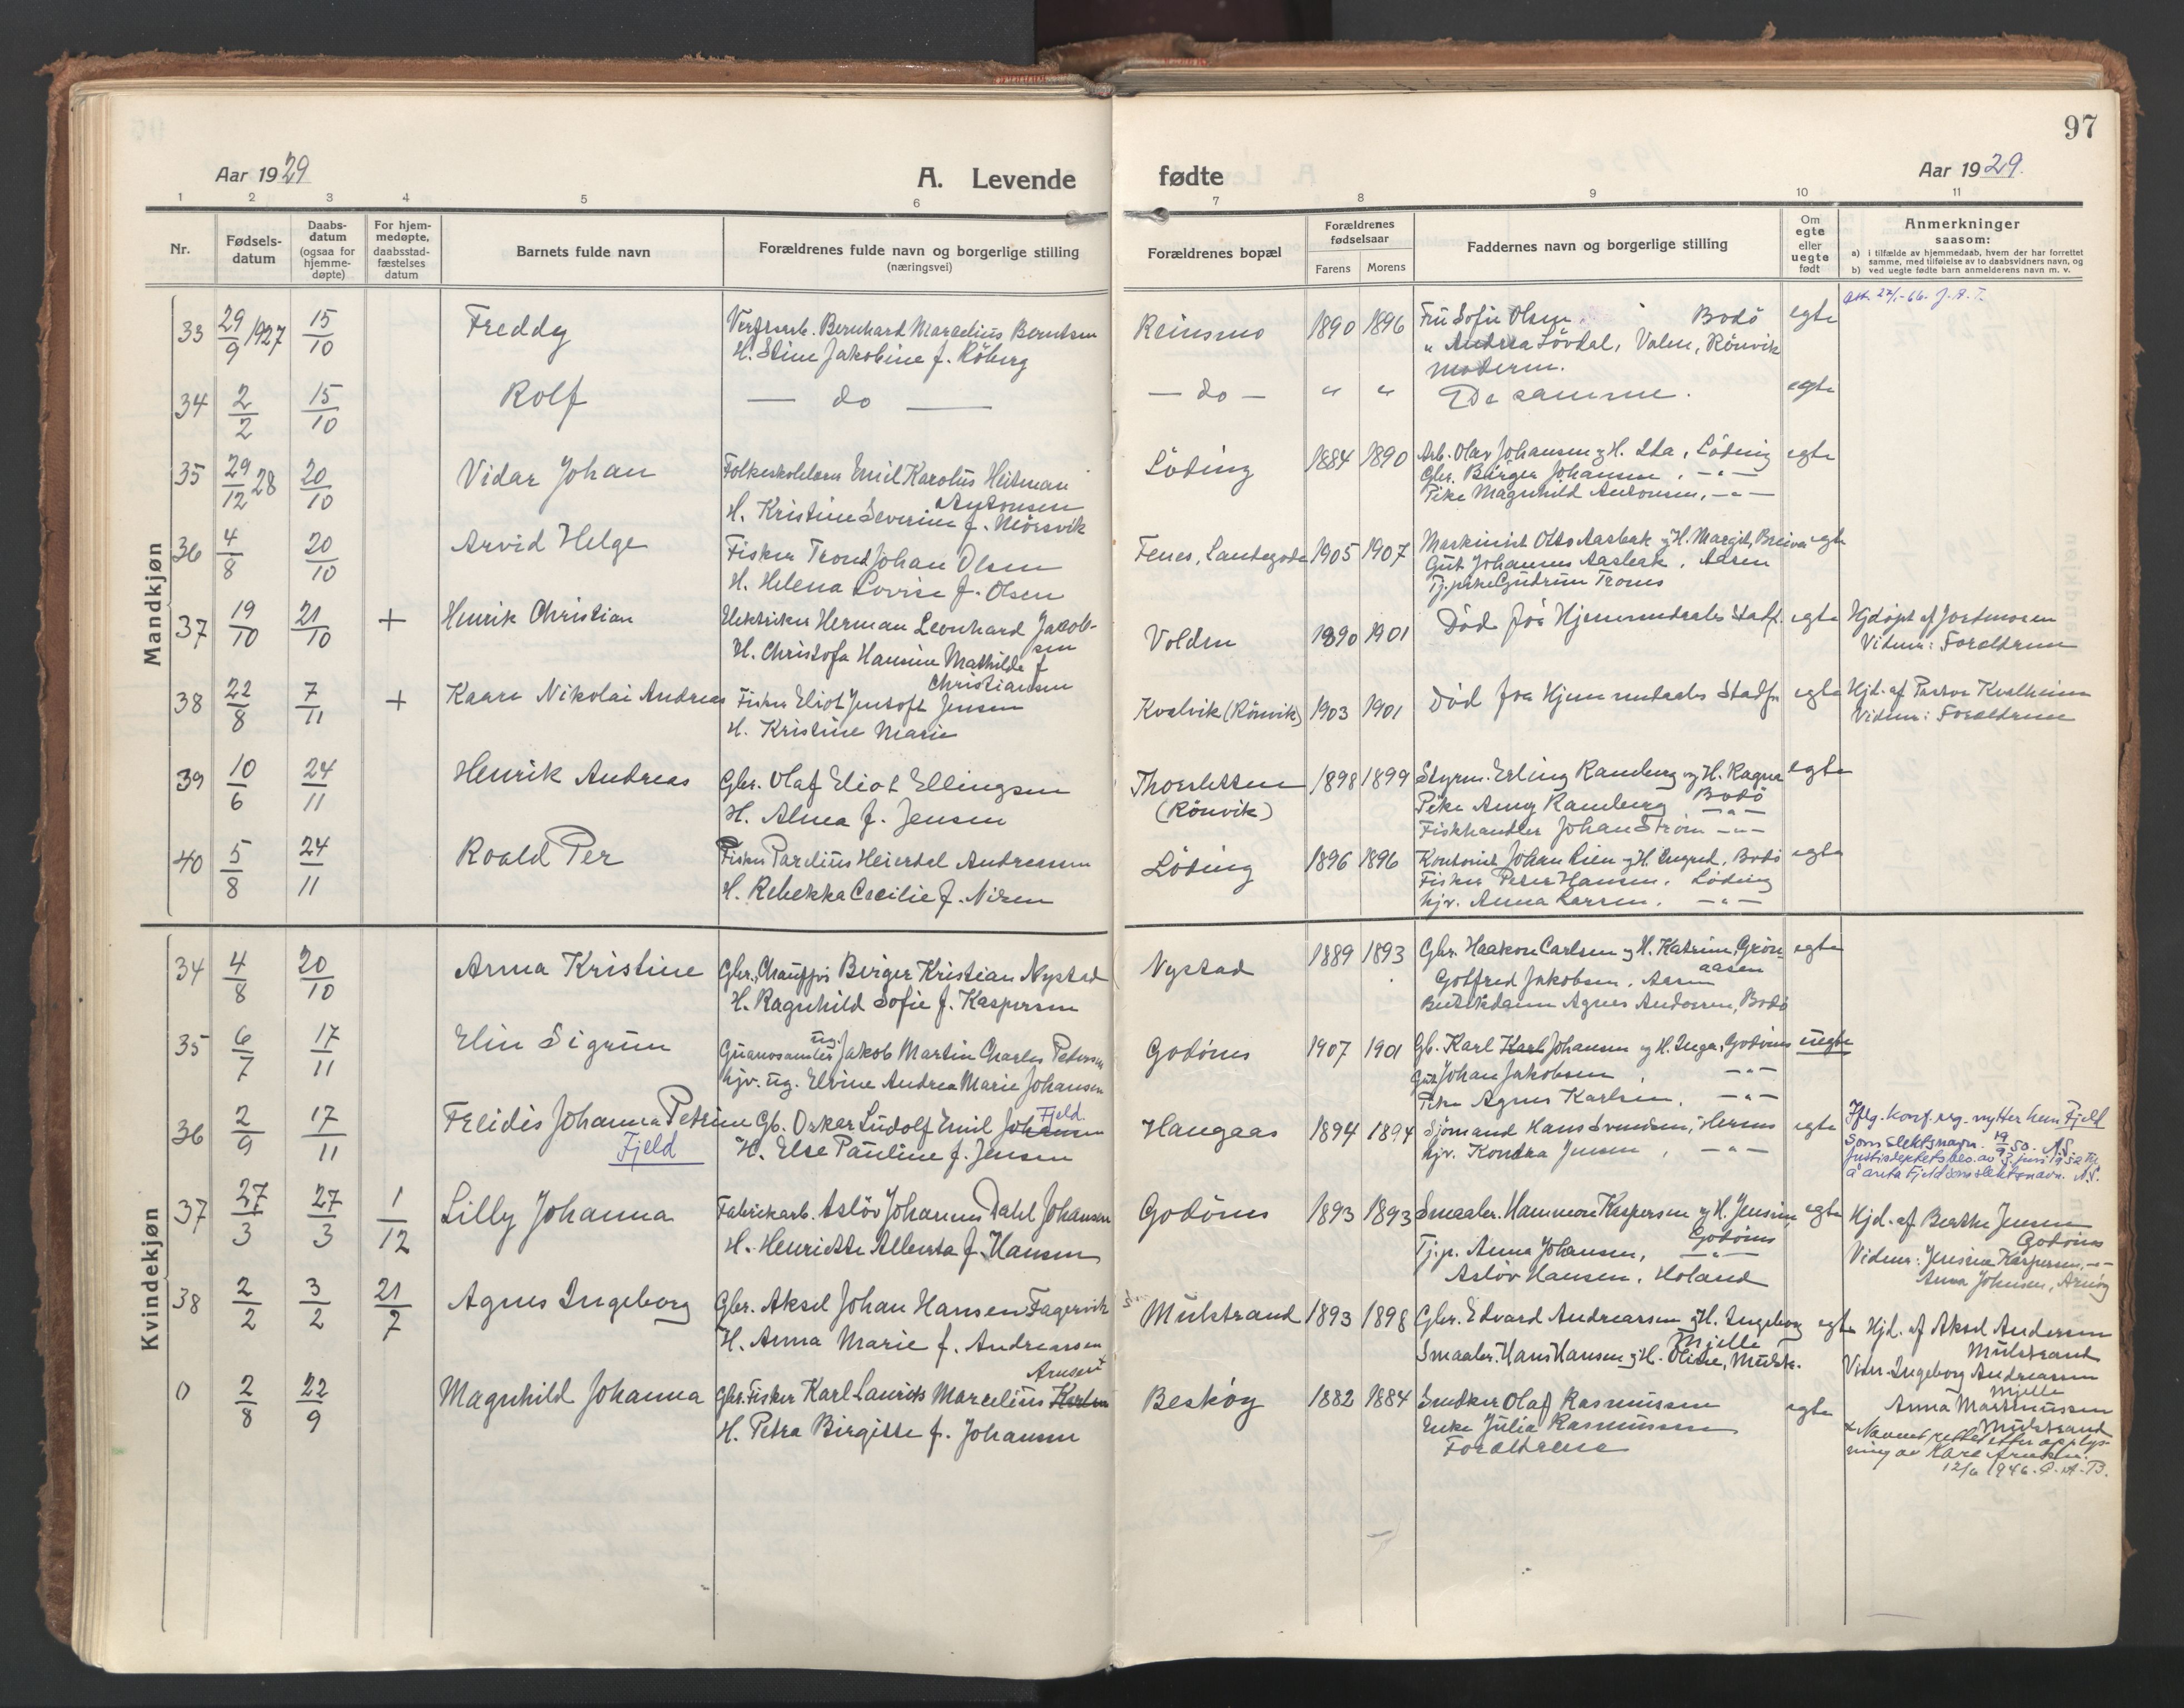 97
Aar 1929
A. Levende
fødte
Aar 1929.
1 2 3 4 5 6 7 8 9 10 11
Nr.
Fødsels-
datum
Daabs-
datum
(ogsaa for
hjemme-
døpte)
For hjem-
medøpte,
daabsstad-
fæstelses
datum
Barnets fulde navn
Forældrenes fulde navn og borgerlige stilling
(næringsvei)
Forældrenes bopæl
Forældrenes
fødselsaar
Farens Morens
Faddernes navn og borgerlige stilling
Om
egte
eller
uegte
født
Anmerkninger
saasom:
a) I tilfælde av hjemmedaab, hvem der har forrettet
samme, med tilføielse av to daabsvidners navn, og
b) ved uegte fødte barn anmelderens navn m. v.
Mandkjøn
33 29/9 1927 15/10 Freddy
Bernhard Marselius Berntsen
H. Stine Jakobine f. Röberg
Reinsmo 1890 1896
Fru Sofie Olsen. Bodö
" Andrea Lövdal, Valen, Rönvik
Moderen.
egte
34 2/2 15/10 Rolf
— do —
— do — " "
De samme.
egte
35 29/12 28 20/10 Vidar Johan
Emil Karolus Heitman
Antonsen
H. Kristine Severine f. Mörsvik
Löding 1884 1890
Arb. Olav Johansen og H. Ida, Löding
Gbr. Birger Johansen, -"-
Pike Magnhild Antonsen, -"-
egte
36 4/8 20/10 Arvid Helge
Fisker Trond Johan Olsen
H. Helena Lovise f. Olsen
Fenes, Landegode 1905 1907
Maskinist Otto Aasbak og H. Margit,
Gut Johannes Aasbak, Aasen
Tj.pike Gudrun Troms
egte
37 19/10 21/10 + Henrik Christian
Elektriker Herman Leonhard Jacob-
sen
H. Christofa Hansine Mathilde f
Christiansen
Volden 1890 1901
Död för Hjemmedaabs Stadf.
egte
Hjdöpt af Jordmoren
Vidner: Foreldrene
38 22/8 7/11 + Kaare Nikolai Andreas
Fisker Eliot Jentoft Jensen
H. Kristine Marie
Kvalvik (Rönvik) 1903 1901
Död för Hjemmedaabs Stadf.
egte
Hjd. af Pastor Kvalheim
Vidner: Foreldrene
39 10/6 24/11 Henrik Andreas
Gbr. Olaf Eliot Ellingsen
H. Alma f. Jensen
(Rönvik)
1898 1899
Styrm. Erling Ramberg og H. Ragna
Bodö
Pike Anny Ramberg -"-
Fiskhandler Johan Ström -"-
egte
40 5/8 24/11 Roald Per
Fisker Parelius Heierdal Andreassen
H. Rebekka Cecilie f. Nizen
Löding 1896 1896
Kontorist Johan Lien og H. Ingred, Bodö
Fisker Peter Hansen, Löding
hjv. Anna Larsen, -"-
egte
Kvindekjøn
34 4/8 20/10 Anna Kristine
Gbr. Chauffør Birger Kristian Nystad
H. Ragnhild Sofie f. Kaspersen
Nystad 1889 1893
Gbr. Haakon Carlsen og H. Katrine, Grön-
aasen
Gotfred Jakobsen, Aasen
Butikdame Agnes Andorsen, Bodö
egte
35 6/7 17/11 Elin Sigrun
ug.
Guanoarbeider Jakob Martin Charles Petersen
hjv. ug. Elvine Andrea Marie Johansen
Godönes 1907 1901
Gb. Karl Karl Johansen og H. Inga, Godönes
Gut Johan Jakobsen, -"-
Pike Agnes Karlsen, -"-
uegte
36 2/9 17/11 Fredis Johanna Petrine
Fjeld
Fjeld
Gb. Oskar Ludolf Emil Johansen
H. Else Pauline f. Jensen
Haugaas 1894 1894
Sjömand Hans Svendsen, Hernes
hjv. Kondra Jensen, -"-
egte
Iflg. konf.reg. nytter hun Fjeld
som slektsnavn. 19/9 50. N.S.
Justisdeptets bev. av 3 juni 1952 til
å anta Fjeld som slektsnavn. N.S.
37 27/3 27/3 1/12 Lilly Johanna
Fabrikarb. Aslöv Johannes Dahl Johansen
H. Henriette Alberta f. Hansen
Godönes 1893 1893
Smaabr. Hammon Kaspersen og H. Jensine
Godönes
Tj.p. Anna Johansen, -"-
Aslöv Hansen, Höland
egte
Hjd. af Berthe Jensen
Godönes
Vidner: Jensine Kaspersen, -"-
Anna Johnsen, Arnöy
38 2/2 3/2 21/7 Agnes Ingeborg
Gbr. Aksel Johan Hansen Fagervik
H. Anna Marie f. Andreassen
Mulstrand 1893 1898
Gbr. Edvard Andreassen og H. Ingeborg
Mjelle
Smaabr. Hans Hansen og H. Oline, Mulstr.
egte
Hjd. af Aksel Andersen
Mulstrand
Vidn. Ingeborg Andreassen
Mjelle
Anna Martinussen
Mulstrand
0 2/8 22/9 Magnhild Johanna
Arnsen x
Gbr. Fisker Karl Laurits Marcelius Karlsen
H. Petra Birgitte f. Johansen
Besköy 1882 1884
Snedker Olaf Rasmussen
Enke Julia Rasmussen
Foreldrene
egte
x Navnet rettet etter opplys-
ning av Karl Arnsen.
12/6 1946.